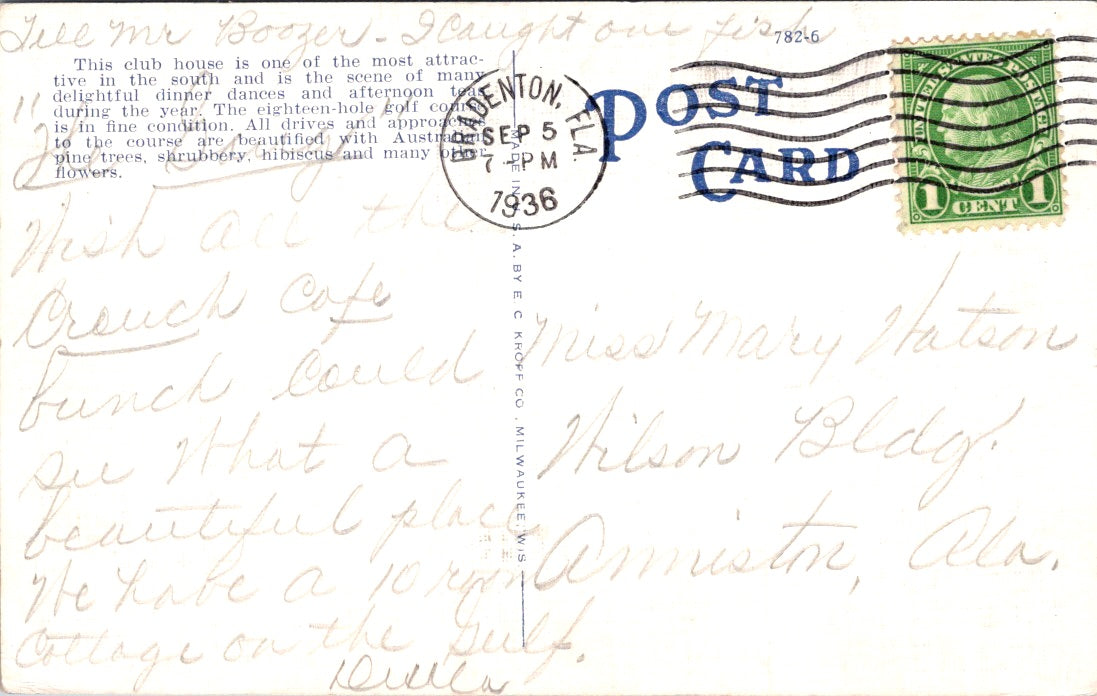 Tell Mr Boozer - I caught one fish
782-6
This club house is one of the most attrac-
tive in the south and is the scene of many
delightful dinner dances and afternoon teas
during the year. The eighteen-hole golf course
is in fine condition. All drives and approaches
to the course are beautified with Australian
pine trees, shrubbery, hibiscus and many other
flowers.
Wish all the
Crouch Cafe
bunch could
see What a
beautiful place
We have a 10 room
Cottage on the Gulf.
MADE IN U. S. A. BY E. C. KROPP CO., MILWAUKEE, WIS.
BRADENTON, FLA.
SEP 5
7 - PM
1936
POST
CARD
UNITED STATES POSTAGE
1 CENT 1
Miss Mary Watson
Wilson Bldg.
Anniston, Ala.